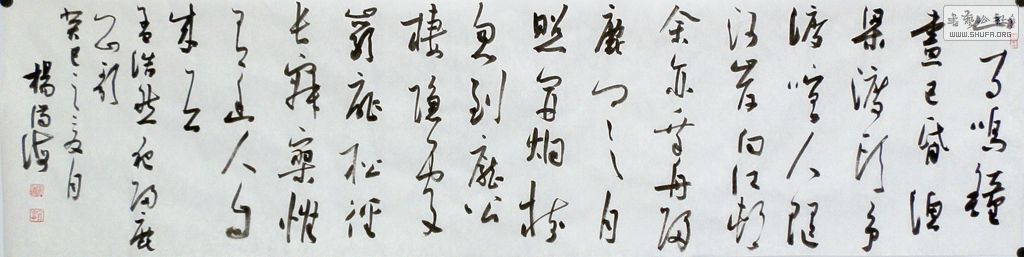 山寺鳴鐘
晝已昏漁
梁渡頭爭
渡喧人隨
沙岸向江邨
余亦乘舟歸
鹿門〻〻月
照開烟樹
忽到龐公
棲隱處
巖扉松徑
長寂寥惟
有幽人自
來去
孟浩然夜歸鹿
門山歌
癸巳之夏月
楊
WWW.SHUFA.ORG